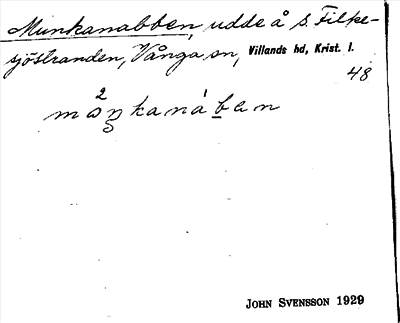 Munkanabben, udde å s. Filke-
sjöstranden, Vånga sn, Villands hd, Krist. l.
48
mån̥kanáb̲an
JOHN SVENSSON 1929